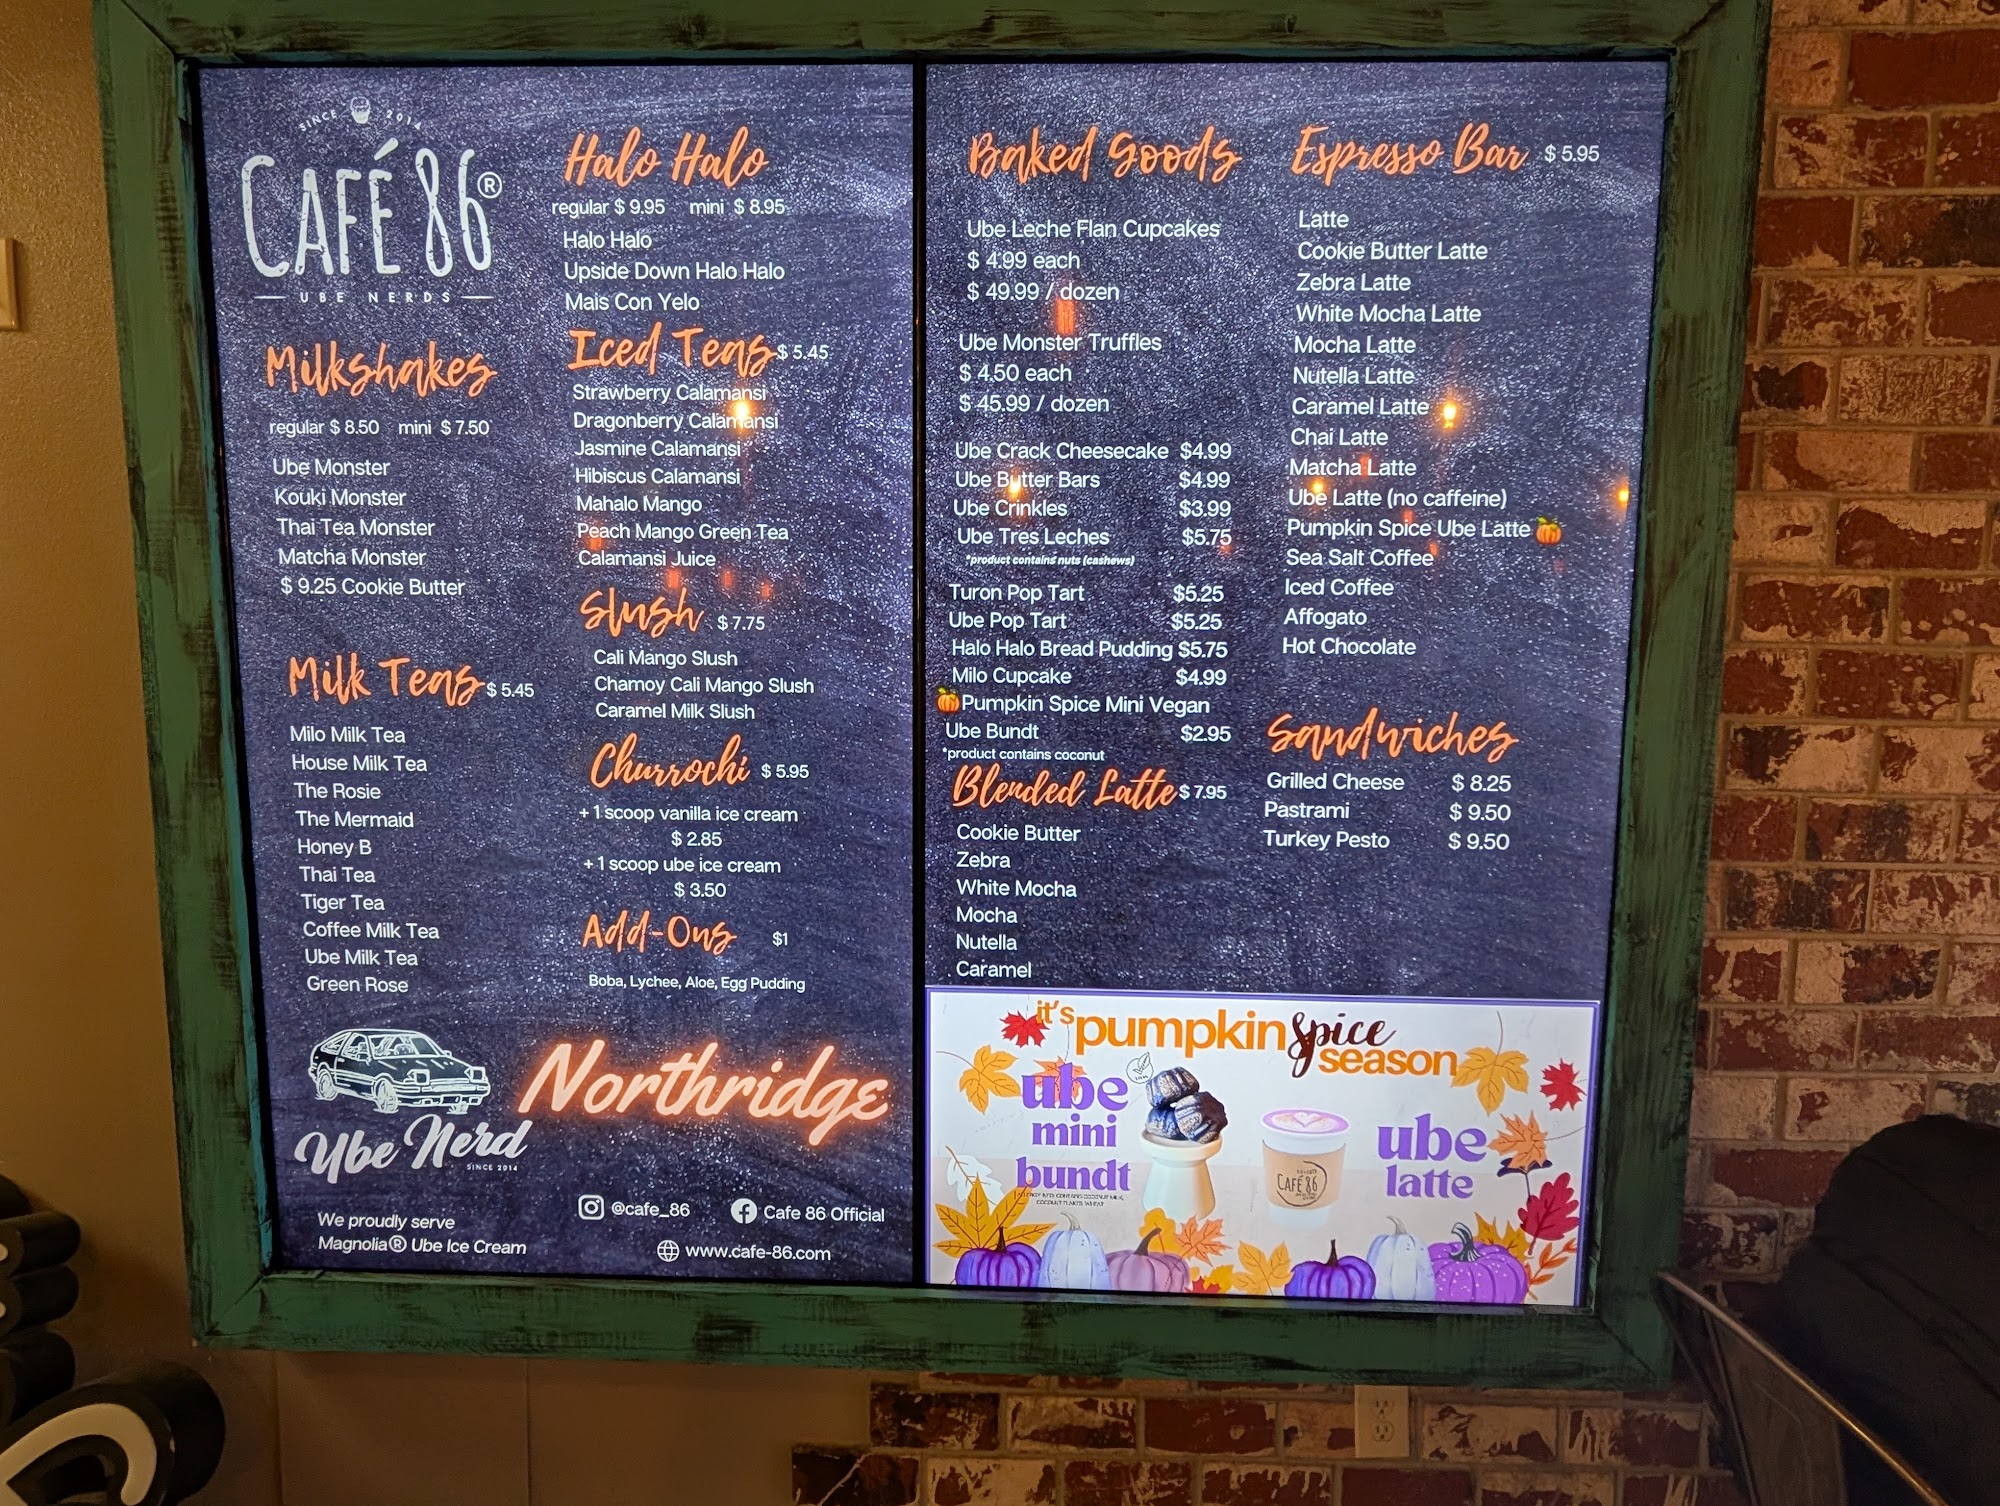 SINCE 2014
CAFÉ 86®
UBE NERDS
Milkshakes
regular $ 8.50 mini $ 7.50
Ube Monster
Kouki Monster
Thai Tea Monster
Matcha Monster
$ 9.25 Cookie Butter
Milk Teas $ 5.45
Milo Milk Tea
House Milk Tea
The Rosie
The Mermaid
Honey B
Thai Tea
Tiger Tea
Coffee Milk Tea
Ube Milk Tea
Green Rose
Ube Nerd
SINCE 2014
We proudly serve
Magnolia® Ube Ice Cream
Halo Halo
regular $ 9.95 mini $ 8.95
Halo Halo
Upside Down Halo Halo
Mais Con Yelo
Iced Teas $ 5.45
Strawberry Calamansi
Dragonberry Calamansi
Jasmine Calamansi
Hibiscus Calamansi
Mahalo Mango
Peach Mango Green Tea
Calamansi Juice
Slush $ 7.75
Cali Mango Slush
Chamoy Cali Mango Slush
Caramel Milk Slush
Churrochi $ 5.95
+ 1 scoop vanilla ice cream
$ 2.85
+ 1 scoop ube ice cream
$ 3.50
Add-Ons $1
Boba, Lychee, Aloe, Egg Pudding
Northridge
@cafe_86 Cafe 86 Official
www.cafe-86.com
Baked Goods
Ube Leche Flan Cupcakes
$ 4.99 each
$ 49.99 / dozen
Ube Monster Truffles
$ 4.50 each
$ 45.99 / dozen
Ube Crack Cheesecake $4.99
Ube Butter Bars $4.99
Ube Crinkles $3.99
Ube Tres Leches $5.75
*product contains nuts (cashews)
Turon Pop Tart $5.25
Ube Pop Tart $5.25
Halo Halo Bread Pudding $5.75
Milo Cupcake $4.99
🎃Pumpkin Spice Mini Vegan
Ube Bundt $2.95
*product contains coconut
Blended Latte $ 7.95
Cookie Butter
Zebra
White Mocha
Mocha
Nutella
Caramel
Espresso Bar $ 5.95
Latte
Cookie Butter Latte
Zebra Latte
White Mocha Latte
Mocha Latte
Nutella Latte
Caramel Latte
Chai Latte
Matcha Latte
Ube Latte (no caffeine)
Pumpkin Spice Ube Latte 🎃
Sea Salt Coffee
Iced Coffee
Affogato
Hot Chocolate
Sandwiches
Grilled Cheese $ 8.25
Pastrami $ 9.50
Turkey Pesto $ 9.50
it's pumpkin spice season
ube
mini
bundt
CAFÉ 86
ube
latte